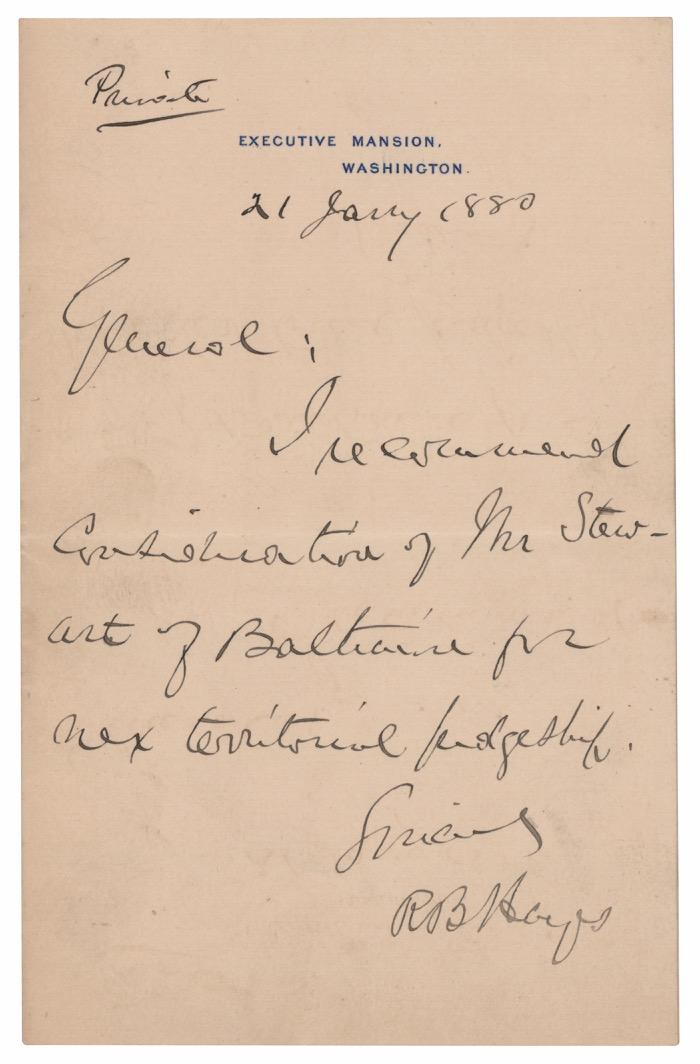 Private
EXECUTIVE MANSION,
WASHINGTON.
21 Jany 1880
General:
I recommend
consideration of Mr Stew-
art of Baltimore for
nex territorial judgeship.
Sincerely
R B Hayes